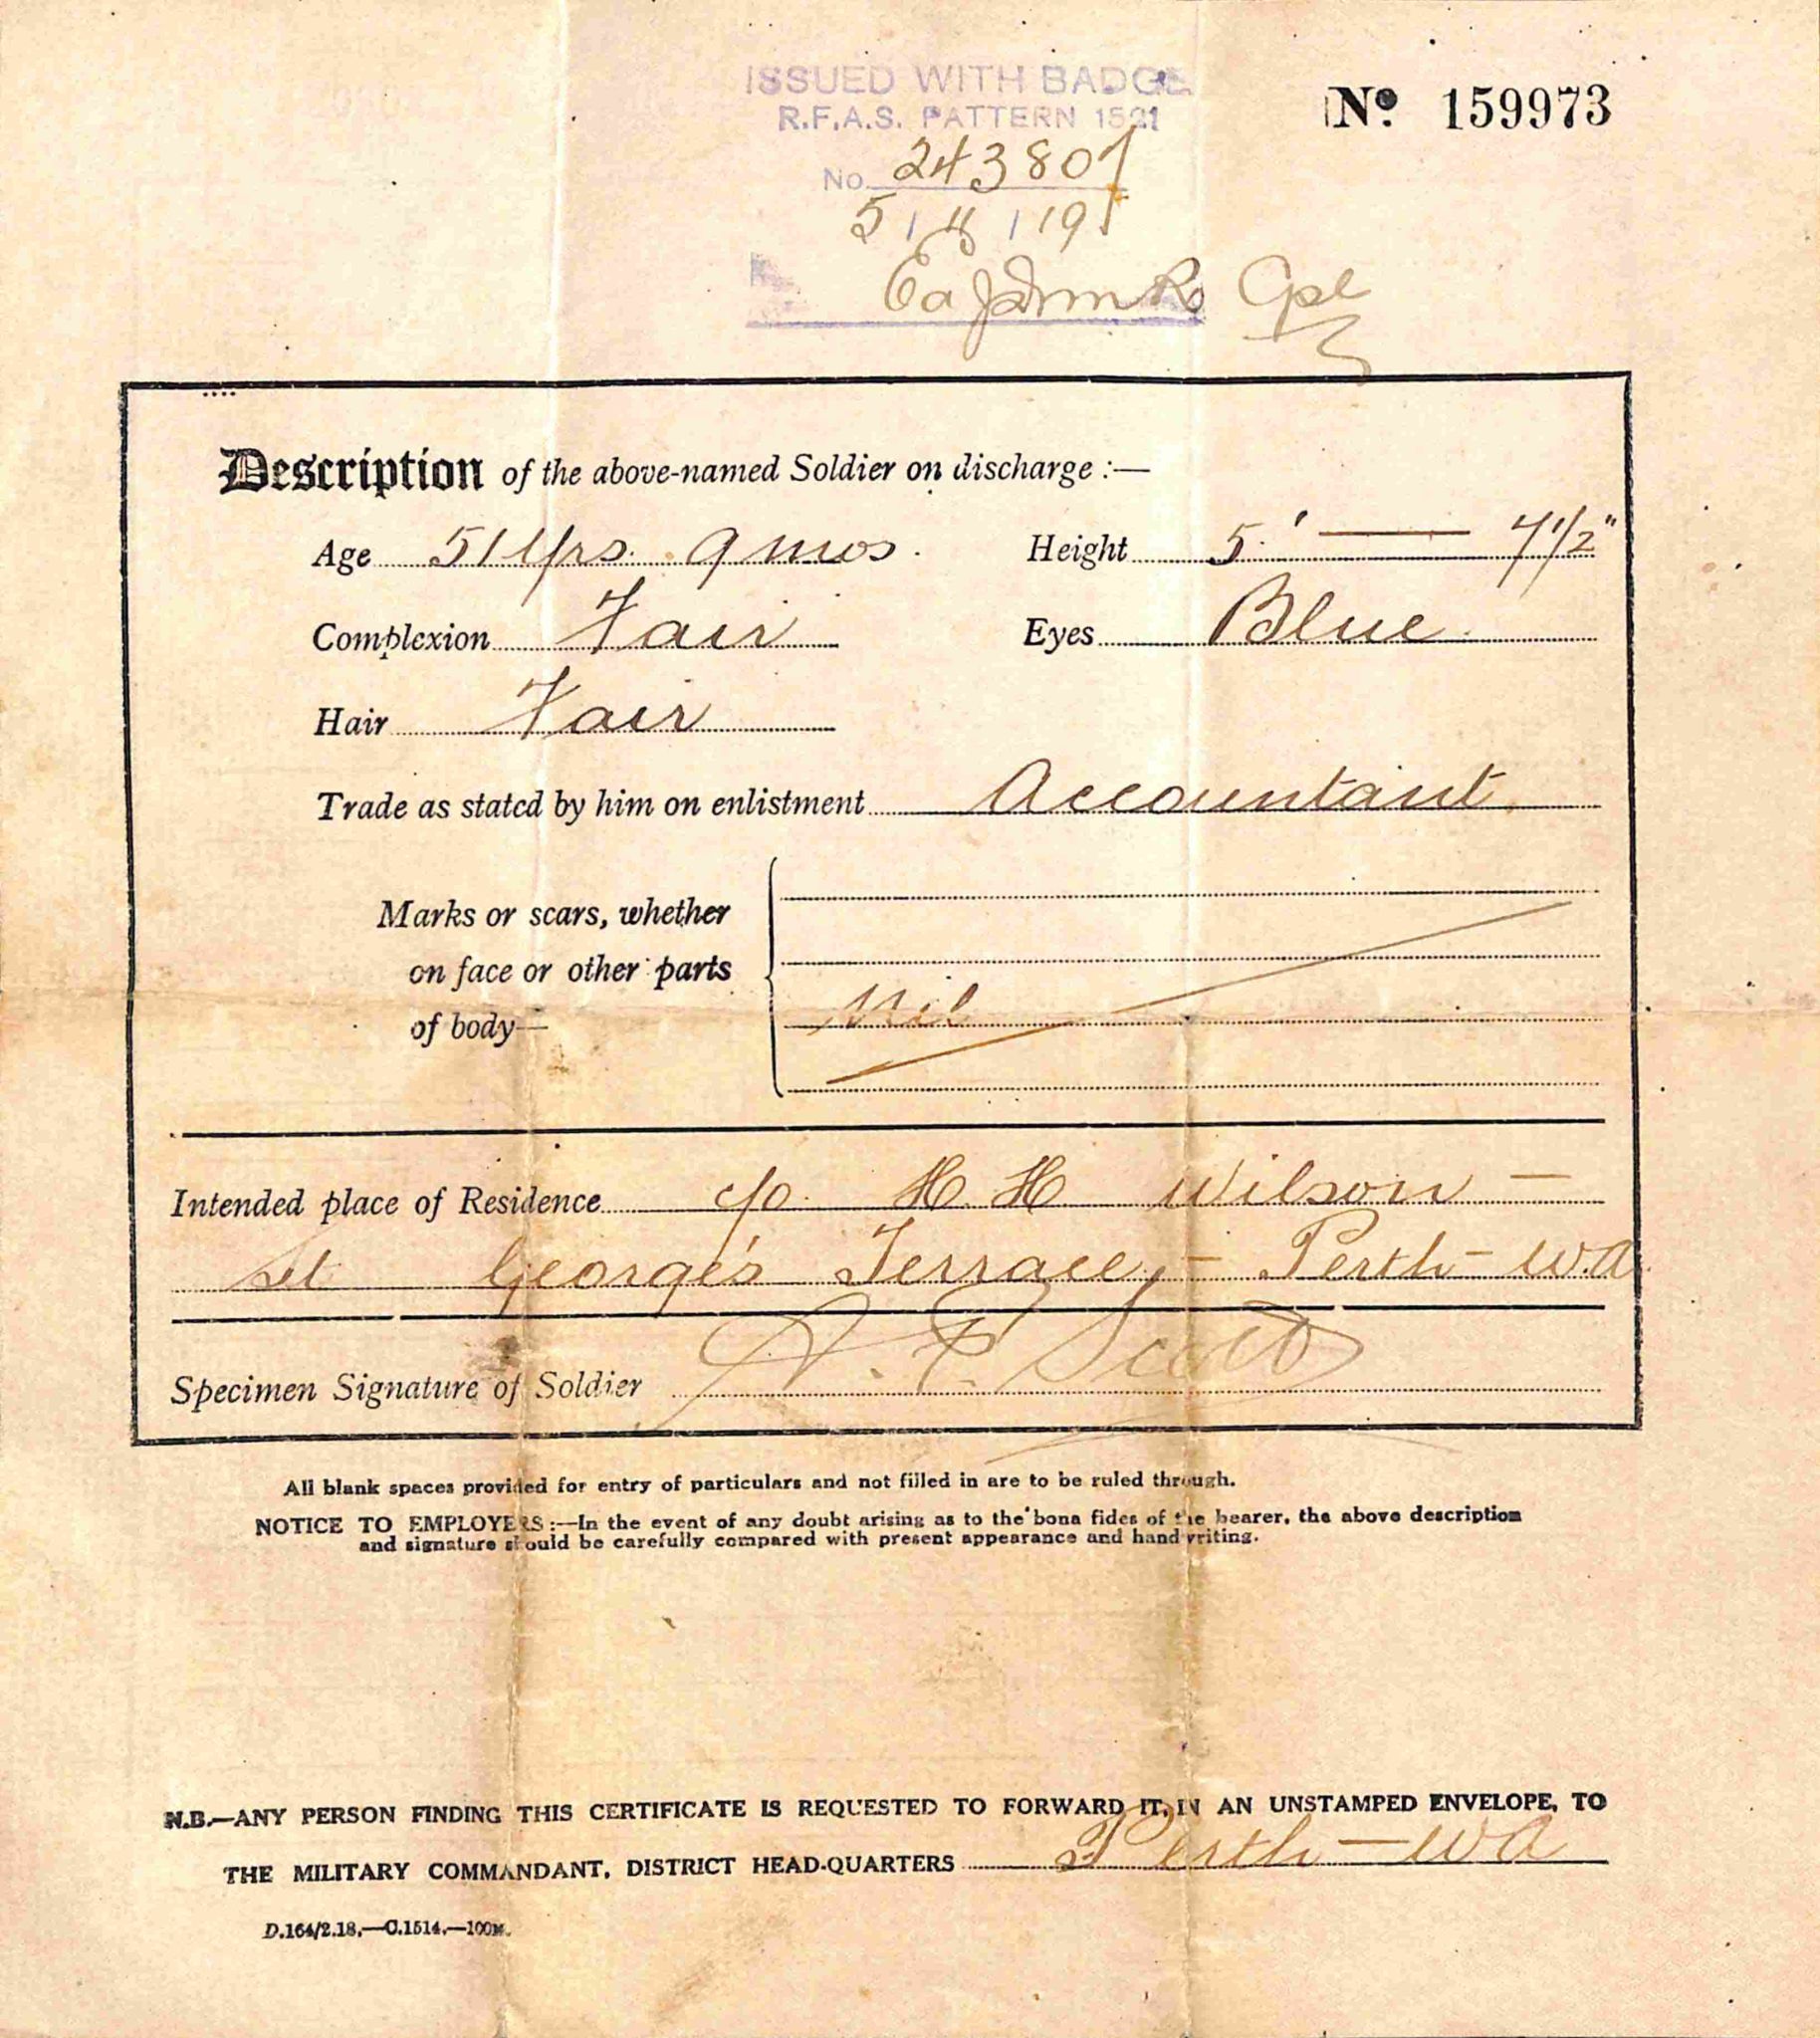 ISSUED WITH BADGE
R.F.A.S. PATTERN 1521
Nº 159973
No. 243807
5 / / 19
Cpl
Description of the above-named Soldier on discharge :—
Age 51 Yrs. 9 mos. Height 5' — 7 1/2"
Complexion Fair Eyes Blue.
Hair Fair
Trade as stated by him on enlistment Accountant
Marks or scars, whether
on face or other parts
of body— Nil
Intended place of Residence c/o. H. H. Wilson —
St George's Terrace, — Perth — W.A.
Specimen Signature of Soldier Scott
All blank spaces provided for entry of particulars and not filled in are to be ruled through.
NOTICE TO EMPLOYERS :—In the event of any doubt arising as to the bona fides of the bearer, the above description
and signature should be carefully compared with present appearance and handwriting.
N.B.—ANY PERSON FINDING THIS CERTIFICATE IS REQUESTED TO FORWARD IT, IN AN UNSTAMPED ENVELOPE, TO
THE MILITARY COMMANDANT, DISTRICT HEAD-QUARTERS Perth — WA
D.164/2.18.—C.1514.—100M.